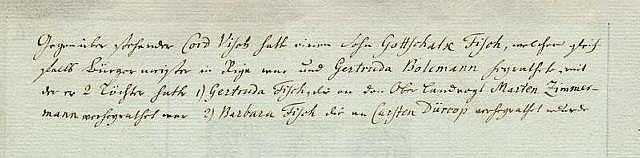 Gegenüber stehender Cord Visch hatt einen Sohn Gottschalk Fisch, welcher gleich
falls Bürgermeister in Riga war und Gertruda Bolemann heyrathete, mit
der er 2 Töchter hatte 1) Gertruda Fisch, die an den Ober Landvogt Marten Zimmer-
mann verheyrathet war 2) Barbara Fisch die an Carsten Dürcop verheyrathet wurde